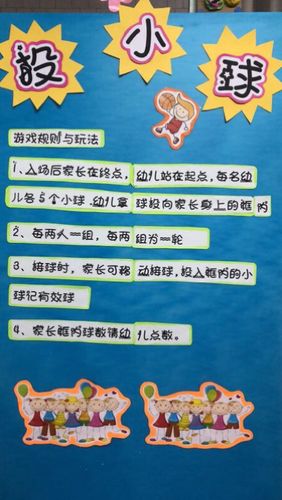 投小球
游戏规则与玩法
1、入场后家长在终点，幼儿站在起点，每名幼
儿各5个小球.幼儿拿球投向家长身上的框内
2、每两人一组，每两组为一轮
3、接球时，家长可移动接球，投入框内的小
球记有效球
4、家长框内球数请幼儿点数。